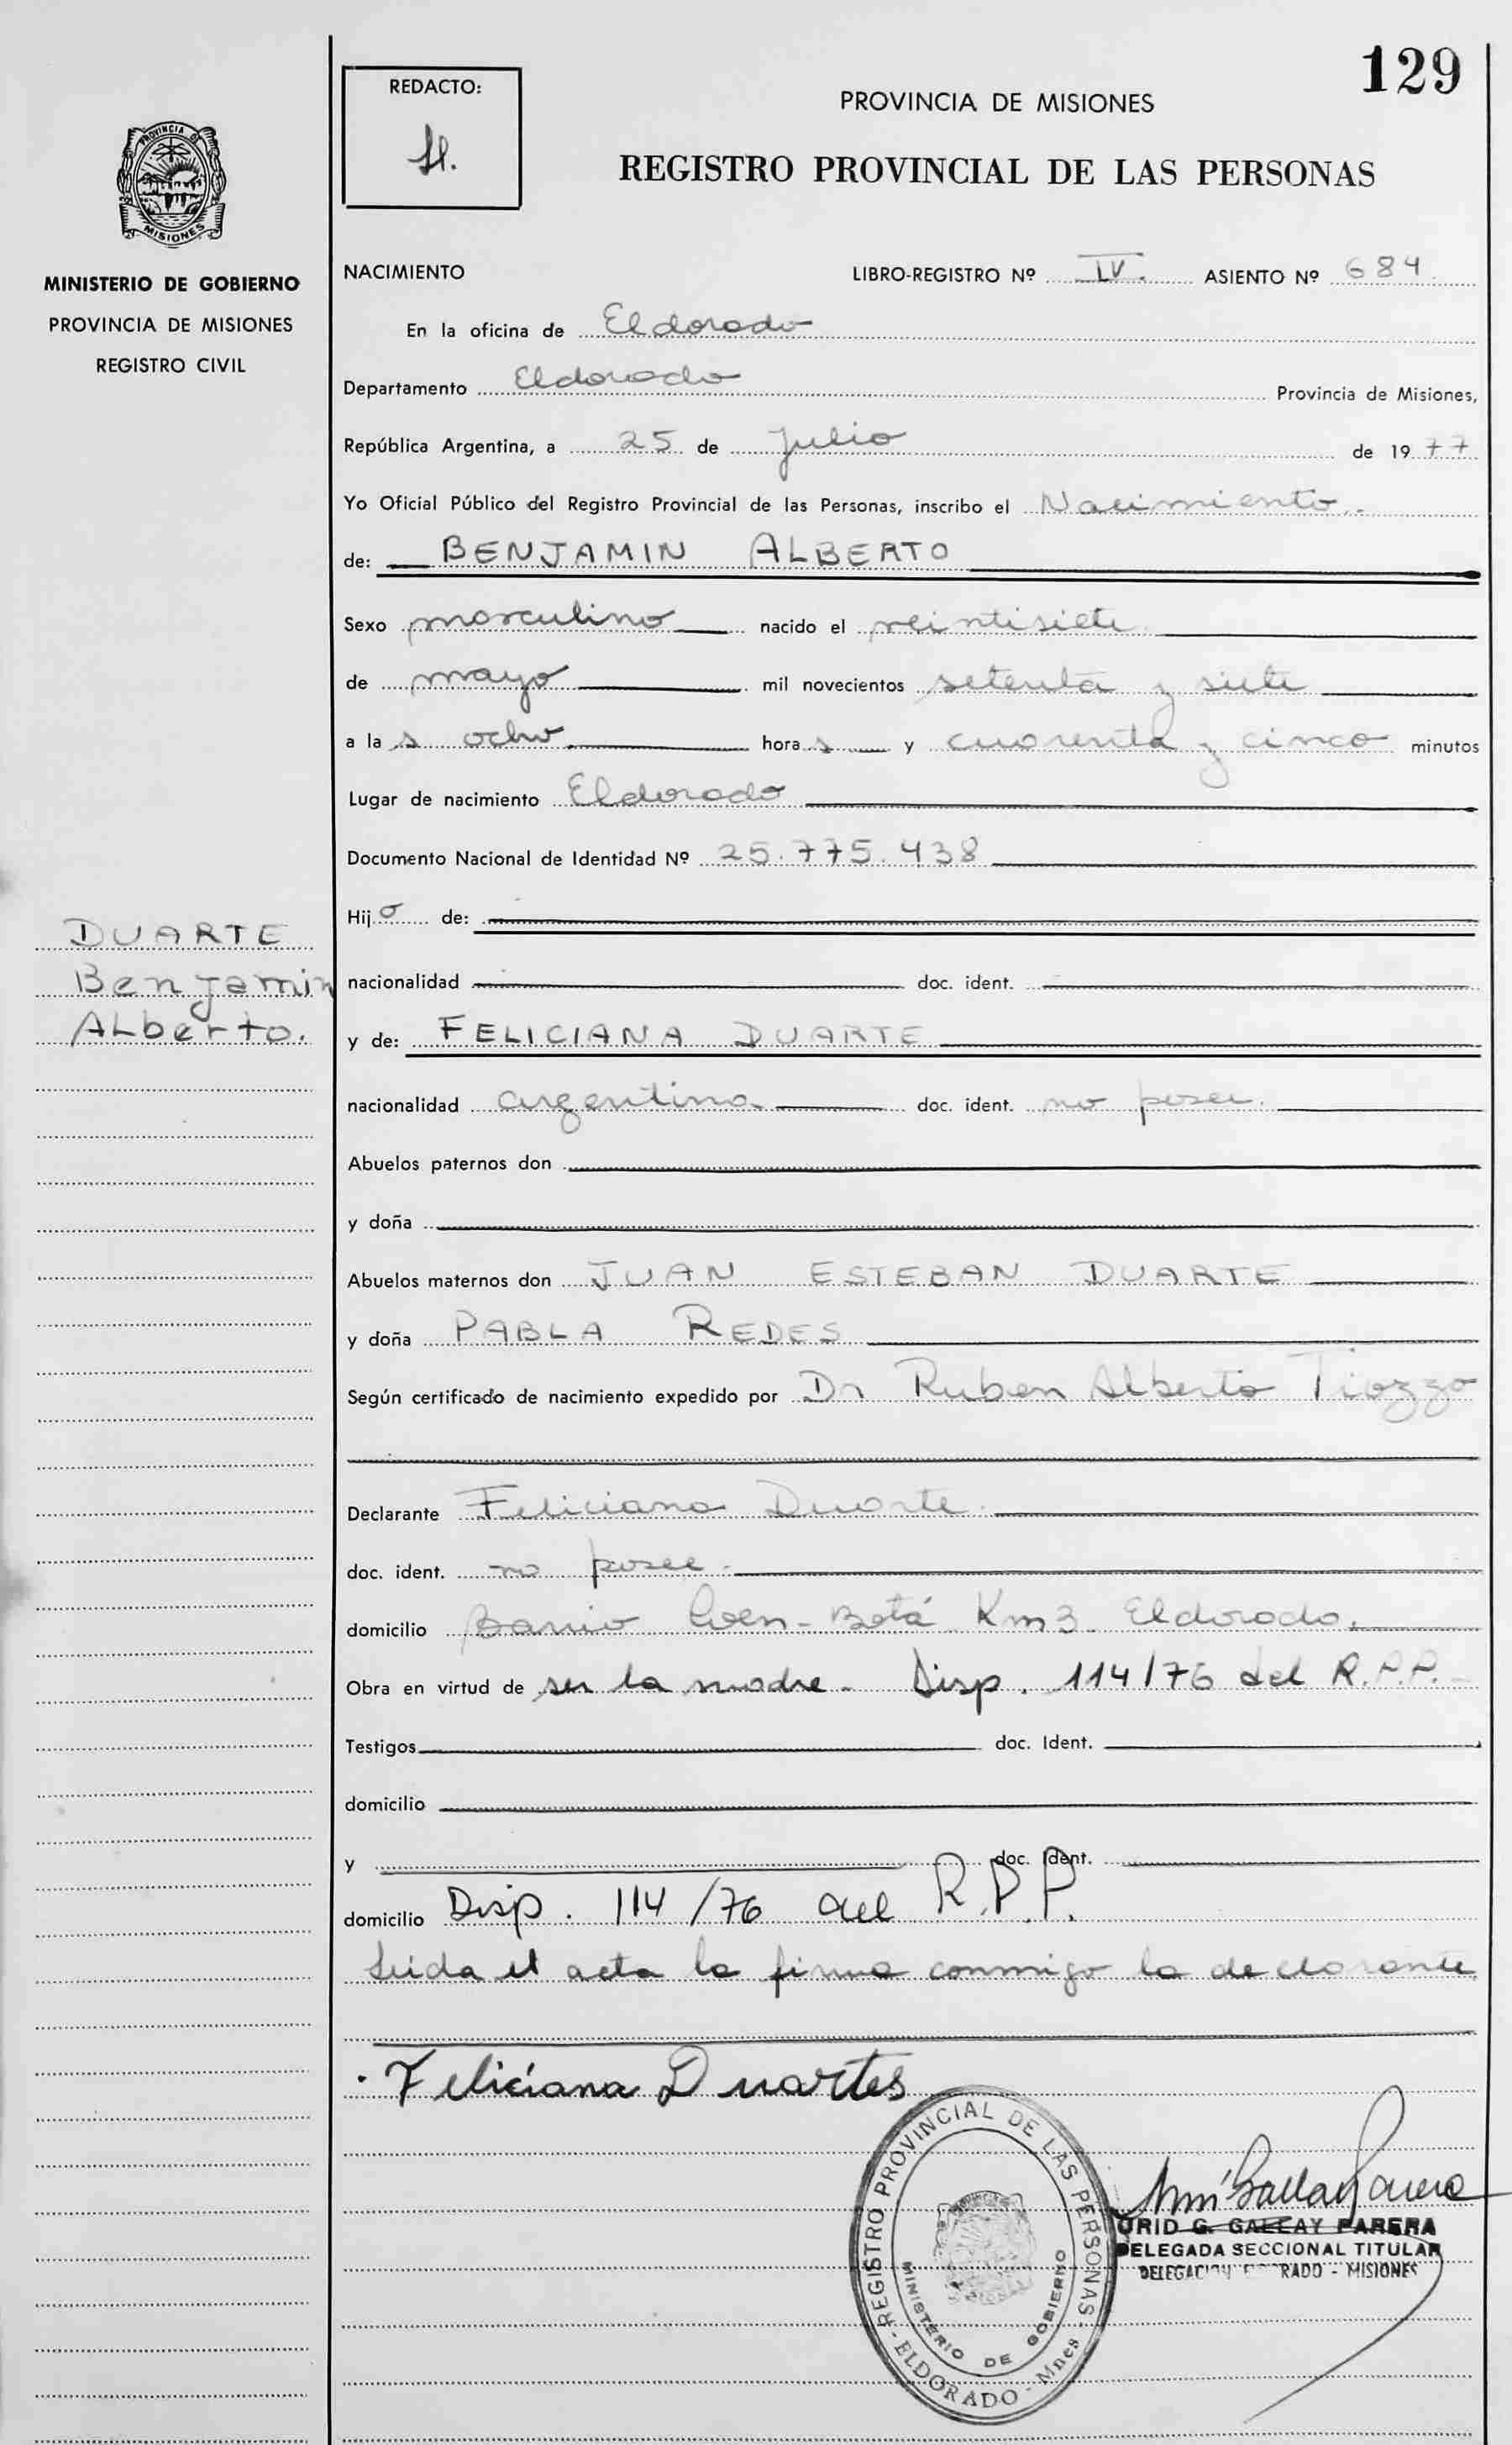 129
REDACTO:
PROVINCIA DE MISIONES
REGISTRO PROVINCIAL DE LAS PERSONAS
PROVINCIA DE
MISIONES
MINISTERIO DE GOBIERNO
PROVINCIA DE MISIONES
REGISTRO CIVIL
NACIMIENTO LIBRO-REGISTRO Nº IV. ASIENTO Nº 684
En la oficina de Eldorado
Departamento Eldorado Provincia de Misiones,
República Argentina, a 25 de Julio de 1977
Yo Oficial Público del Registro Provincial de las Personas, inscribo el Nacimiento.
de: BENJAMIN ALBERTO
Sexo masculino nacido el veintisiete
de mayo mil novecientos setenta y siete
a las ocho horas y cuarenta y cinco minutos
Lugar de nacimiento Eldorado
Documento Nacional de Identidad Nº 25.775.438
Hijo de:
DUARTE
Benjamin
Alberto.
nacionalidad doc. ident.
y de: FELICIANA DUARTE
nacionalidad argentina doc. ident. no posee.
Abuelos paternos don
y doña
Abuelos maternos don JUAN ESTEBAN DUARTE
y doña PABLA REDES
Según certificado de nacimiento expedido por Dr Ruben Alberto Tiozzo
Declarante Feliciana Duarte.
doc. ident. no posee.
domicilio Barrio Km3 Eldorado.
Obra en virtud de ser la madre. Disp. 114/76 del R.P.P.
Testigos doc. Ident.
domicilio
y doc. Ident.
domicilio Disp. 114/76 del R.P.P.
Leida el acta la firma conmigo la declarante
Feliciana Duartes
REGISTRO PROVINCIAL DE LAS PERSONAS - ELDORADO - Mnes -
MINISTERIO DE GOBIERNO
URID G. GALLAY PARERA
DELEGADA SECCIONAL TITULAR
MISIONES